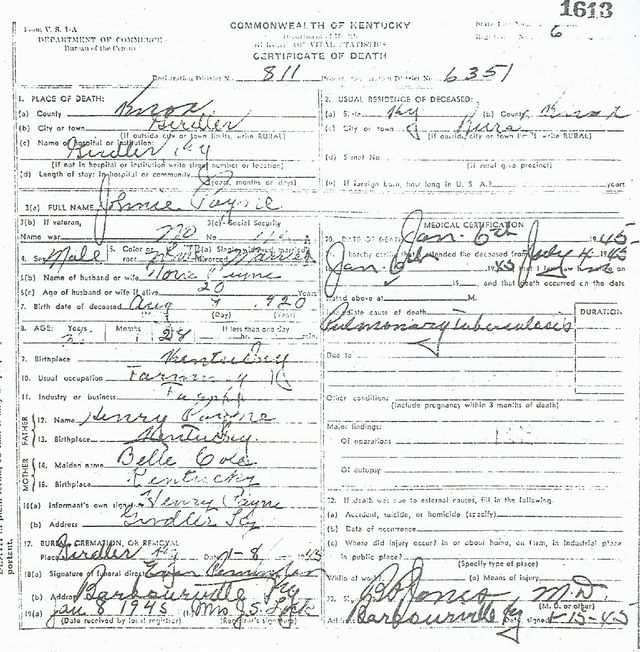 1613
Form V. S. 1-A
COMMONWEALTH OF KENTUCKY
State
DEPARTMENT OF COMMERCE
Bureau of the Census
BUREAU OF VITAL STATISTICS
6
CERTIFICATE OF DEATH
Registration District No. 811
District No. 6351
1. PLACE OF DEATH:
(a) County Knox
(b) City or town Girdler
(If outside city or town limits, write RURAL)
(c) Name of hospital or institution:
Girdler Ky
(If not in hospital or institution write street number or location)
(d) Length of stay: In hospital or community
(years, months or days)
2. USUAL RESIDENCE OF DECEASED:
(a) State Ky (b) County Knox
(c) City or town Rural
(If outside city or town limits, write RURAL)
(d) Street No.
(If rural give precinct)
(e) If foreign born, how long in U. S. A.? years
3(a) FULL NAME Johnie Payne
3(b) If veteran, 3(c) Social Security
Name war No
4. Sex Male 5. Color or race 6(a) Single, widowed, married, divorced Married
6(b) Name of husband or wife Payne
6(c) Age of husband or wife if alive 20 Years
7. Birth date of deceased Aug 9 1920
(Day) (Year)
8. AGE: Years Months Days If less than one day
28 hr. min.
9. Birthplace Kentucky
10. Usual occupation Farming
11. Industry or business
FATHER
12. Name Henry Payne
13. Birthplace Kentucky.
MOTHER
14. Maiden name Belle Cole
15. Birthplace Kentucky
16(a) Informant's own signature Henry Payne
(b) Address Girdler Ky
17. BURIAL, CREMATION, OR REMOVAL
Place Girdler Ky Date 1-8 45
18(a) Signature of funeral director
(b) Address Barbourville Ky
19(a) Jan 8 1945 Mrs J. S.
(Date received by local registrar) (Registrar's signature)
MEDICAL CERTIFICATION
20. DATE OF DEATH Jan. 6th 1945
I hereby certify that I attended the deceased from July 4 1945
Jan 6th 1945 that I last saw
and that death occurred on the date
stated above at M.
Immediate cause of death
DURATION
Pulmonary Tuberculosis
Due to
Other condition:
(Include pregnancy within 3 months of death)
Major findings:
Of operations
Of autopsy
22. If death was due to external causes, fill in the following.
(a) Accident, suicide, or homicide (specify)
(b) Date of occurrence
(c) Where did injury occur? in or about home, on farm, in industrial place
in public place?
(Specify type of place)
While at work? (e) Means of injury
Jones M.D.
(M. D. or other)
Address Barbourville Ky Date signed 1-15-45
portent.